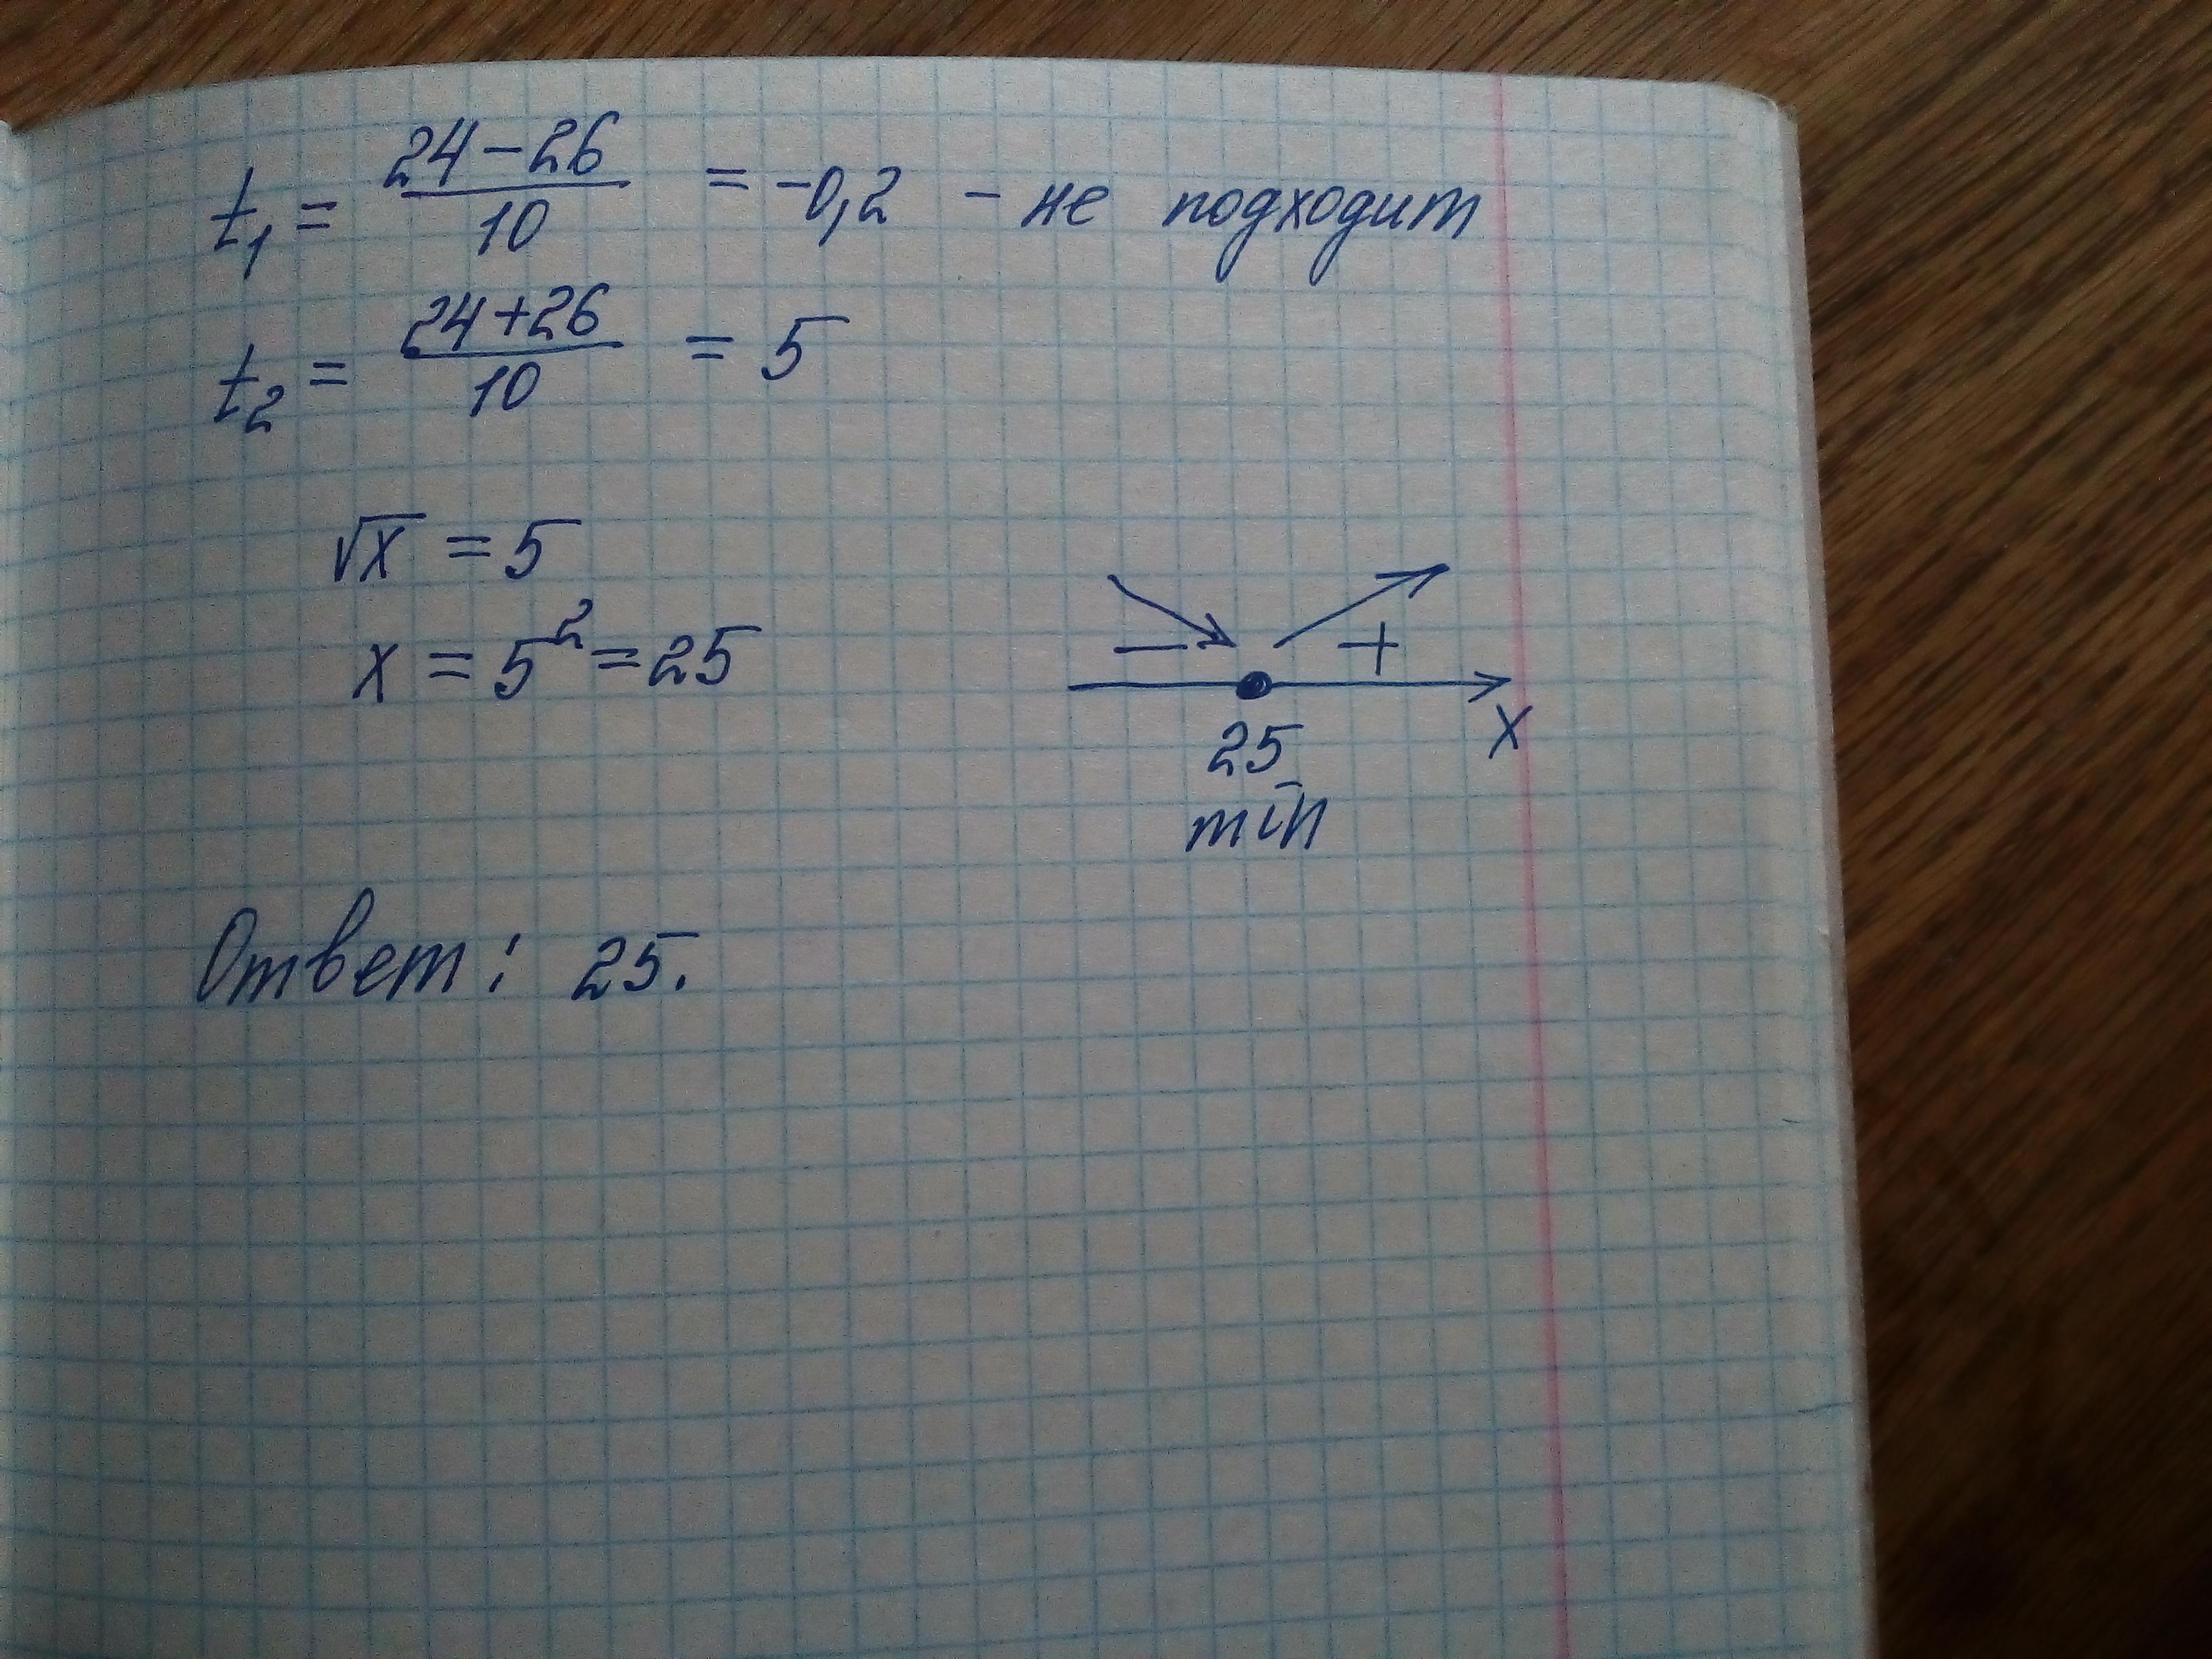 t₁ = (24-26)/10 = -0,2 - не подходит
t₂ = (24+26)/10 = 5
√x = 5
x = 5² = 25
- +
25 x
min
Ответ: 25.